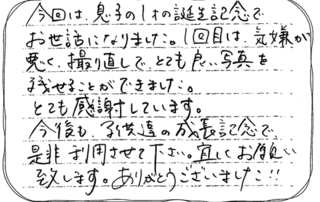 今回は、息子の1才の誕生記念で
お世話になりました。1回目は、気嫌が
悪く、撮り直しで、とても良い写真を
残せることができました。
とても感謝しています。
今後も、子供達の成長記念で、
是非利用させて下さい。宜しくお願い
致します。ありがとうございました!!